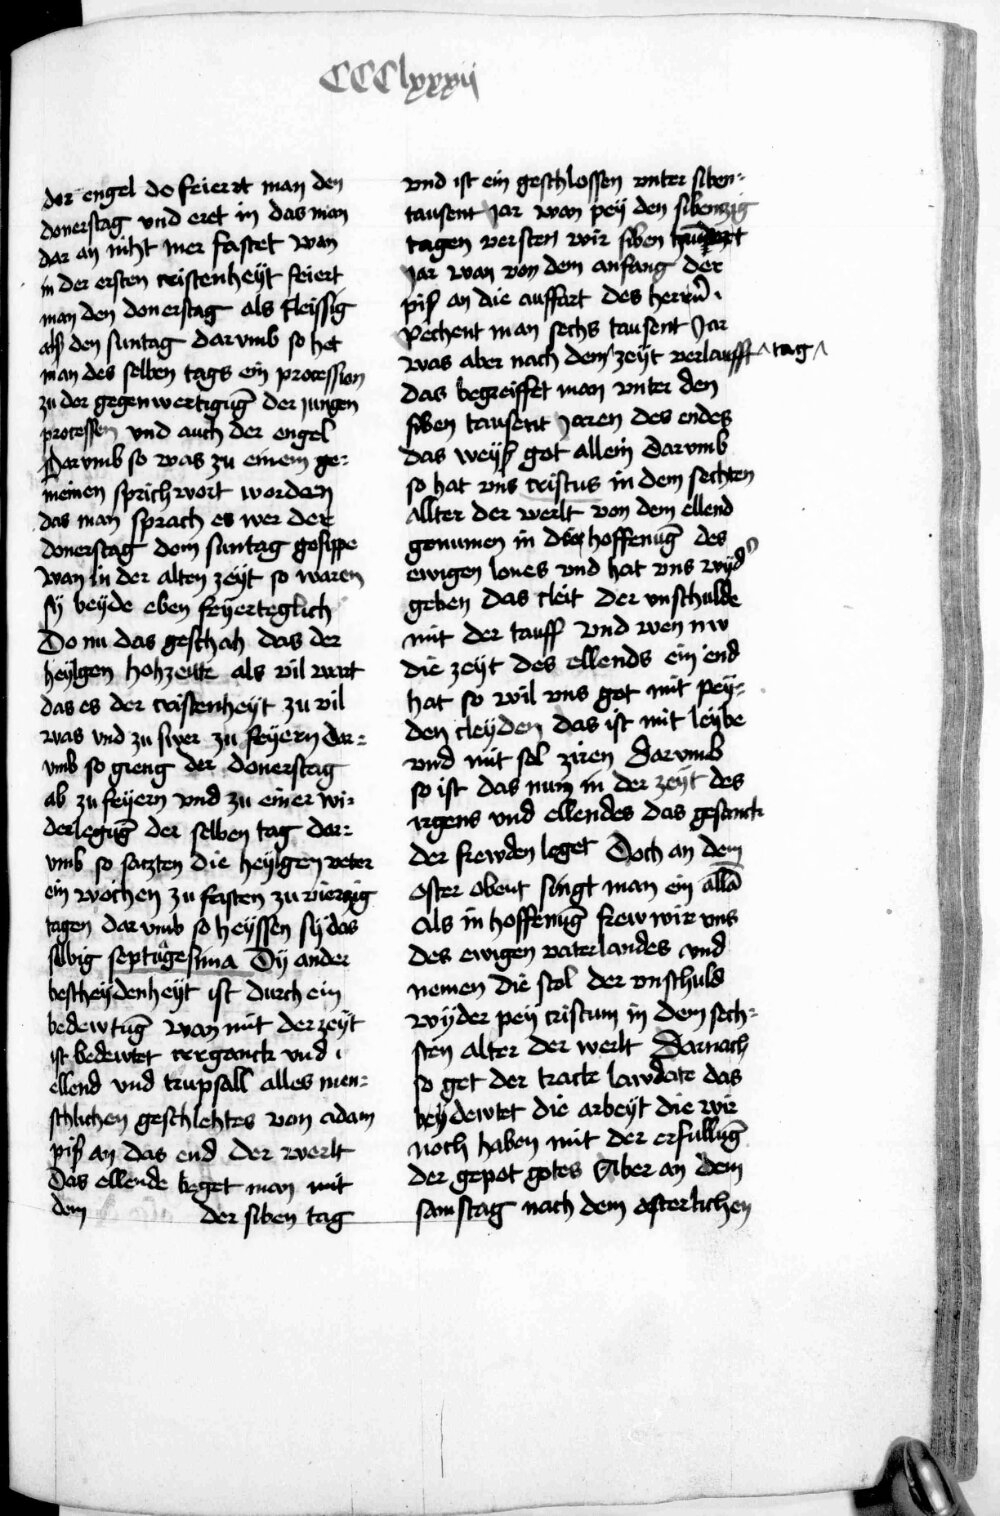 CCClxxxij
der engel do feierrt man den
donerstag vnd eret in das man
dar an niht mer fastet wan
in der ersten cristenheyt feiert
man den donerstag als fleissig
alß den suntag darvmb so het
man des selben tags ein procession
zu der gegenwertigūg der jungen
processen vnd auch der engel
Darvmb so was zu einem ge-
meinen sprichwort worden
das man sprach es wer der
donerstag dem suntag gesippe
wan in der alten zeyt so waren
sy beyde eben feyerteglich
Do nu das geschah das der
heylgen hohzeitte als vil wart
das es der cristenheyt zu vil
was vnd zu swer zu feyern dar-
vmb so gieng der donerstag
ab zu feyern vnd zu einer wi-
derlegūg der selben tag dar-
vmb so saczten die heylgen veter
ein wochen zu fasten zu vierzig
tagen darvmb so heyssen sy das
selbig septuagesima Dy ander
bescheydenheyt ist durch ein
bedewtūg wan mit der zeyt
ist bedewtet verganck vnd
ellend vnd trupsall alles men-
schlichen geschlehtes von adam
piß an das end der werlt
Das ellende beget man mit
dem der siben tag
vnd ist ein geschlossen vnter siben-
tausent Jar wan pey den sibenzig
tagen versten wir siben tausent
Jar wan von dem anfang der
piß an die auffart des herrn
Rechent man sechs tausent Jar
was aber nach dem zeyt verlaufft ^tag^
das begreiffet man vnter den
siben tausent Jaren des endes
das weyß got allein darvmb
so hat vns cristus in dem sechten
allter der werlt von dem ellend
genumen in der hoffenūg des
ewigen lones vnd hat vns wyd'
geben das cleit der vnschulde
mit der tauff vnd wen nw
die zeyt des ellends ein end
hat so wil vns got mit pey-
den cleyden das ist mit leybe
vnd mit sel ziren Darvmb
so ist das num in der zeyt des
irgens vnd ellendes das gesanck
der frewden leget Doch an dem
oster obent singt man ein allā
als in hoffenūg frew wir vns
des ewigen vaterlandes vnd
nemen die stol der vnschuld
wyder pey cristum in dem sech-
sten alter der werlt Darnach
so get der tracte lawdate das
beydewtet die arbeyt die wir
noch haben mit der erfullūg
der gepot gotes Aber an dem
samstag nach dem osterlichen